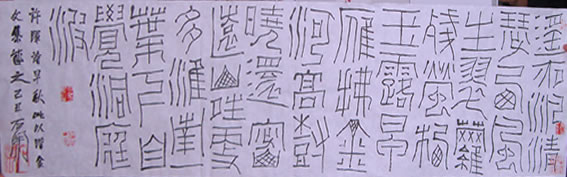 遥夜泛清
瑟西風
生翠蘿
殘螢栖
玉露早
雁拂金
河高樹
曉還密
遠山晴更
多淮南一
葉下自
覺洞庭
波
許渾詩早秋
文集篆之己丑